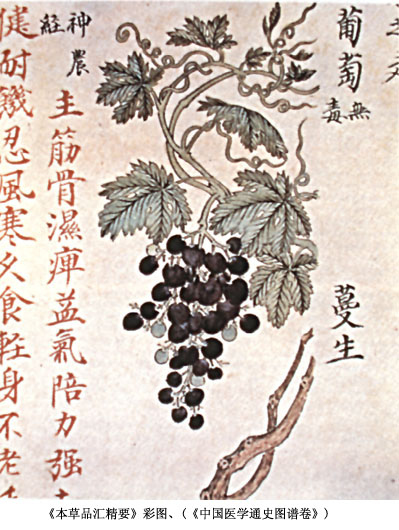 葡萄
無
毒
蔓生
神農
經
主筋骨濕痺益氣陪力强
健耐饑忍風寒久食輕身不老
《本草品汇精要》彩图、(《中国医学通史图谱卷》)